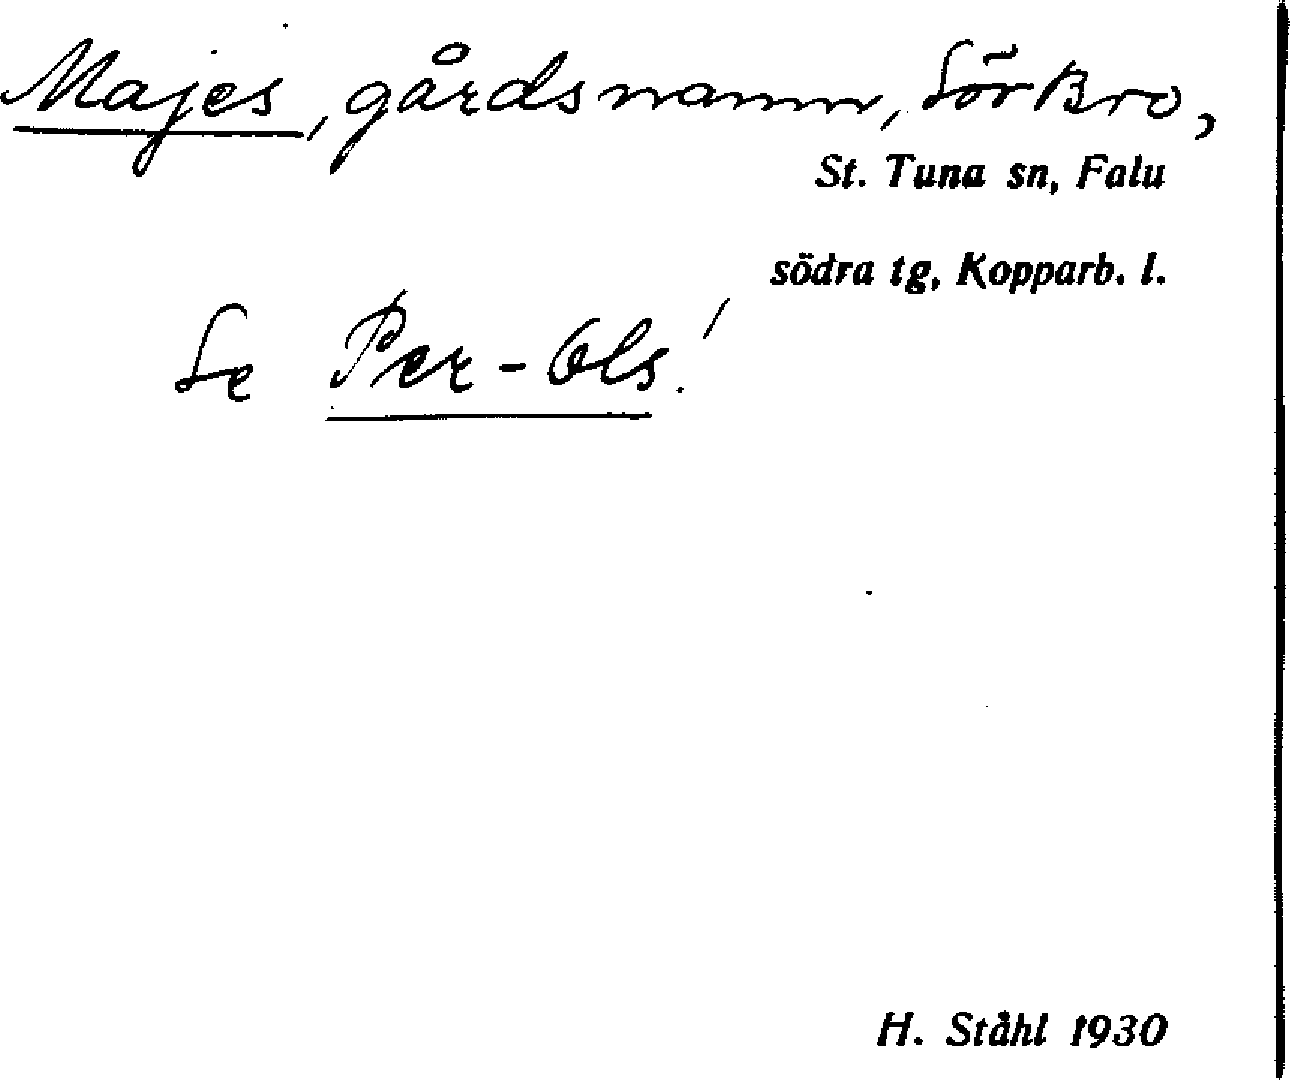 Majes, gårdsnamn, Sör Bro,
St. Tuna sn, Falu
södra tg, Kopparb. l.
Se Per-Ols!
H. Ståhl 1930